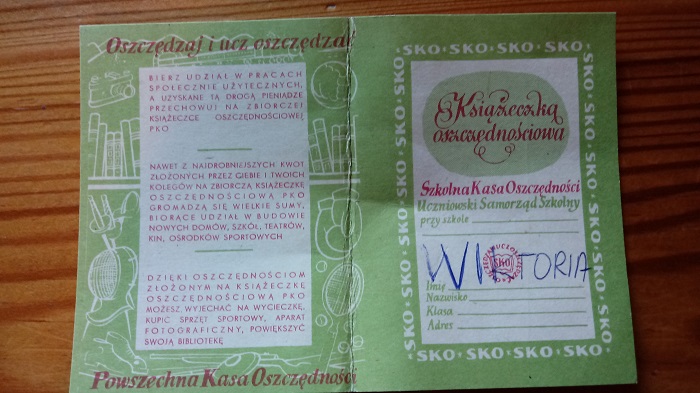 Oszczędzaj i ucz oszczędzać
BIERZ UDZIAŁ W PRACACH
SPOŁECZNIE UŻYTECZNYCH,
A UZYSKANE TĄ DROGĄ PIENIĄDZE
PRZECHOWUJ NA ZBIORCZEJ
KSIĄŻECZCE OSZCZĘDNOŚCIOWEJ
PKO
NAWET Z NAJDROBNIEJSZYCH KWOT
ZŁOŻONYCH PRZEZ CIEBIE I TWOICH
KOLEGÓW NA ZBIORCZĄ KSIĄŻECZKĘ
OSZCZĘDNOŚCIOWĄ PKO
GROMADZĄ SIĘ WIELKIE SUMY,
BIORĄCE UDZIAŁ W BUDOWIE
NOWYCH DOMÓW, SZKÓŁ, TEATRÓW,
KIN, OŚRODKÓW SPORTOWYCH
DZIĘKI OSZCZĘDNOŚCIOM
ZŁOŻONYM NA KSIĄŻECZKĘ
OSZCZĘDNOŚCIOWĄ PKO
MOŻESZ WYJECHAĆ NA WYCIECZKĘ,
KUPIĆ SPRZĘT SPORTOWY, APARAT
FOTOGRAFICZNY, POWIĘKSZYĆ
SWOJĄ BIBLIOTEKĘ
Powszechna Kasa Oszczędności
SKO · SKO · SKO · SKO · SKO
Książeczka
oszczędnościowa
Szkolna Kasa Oszczędności
Uczniowski Samorząd Szkolny
przy szkole
WIKTORIA
SKO
Imię
Nazwisko
Klasa
Adres
SKO · SKO · SKO · SKO · SKO